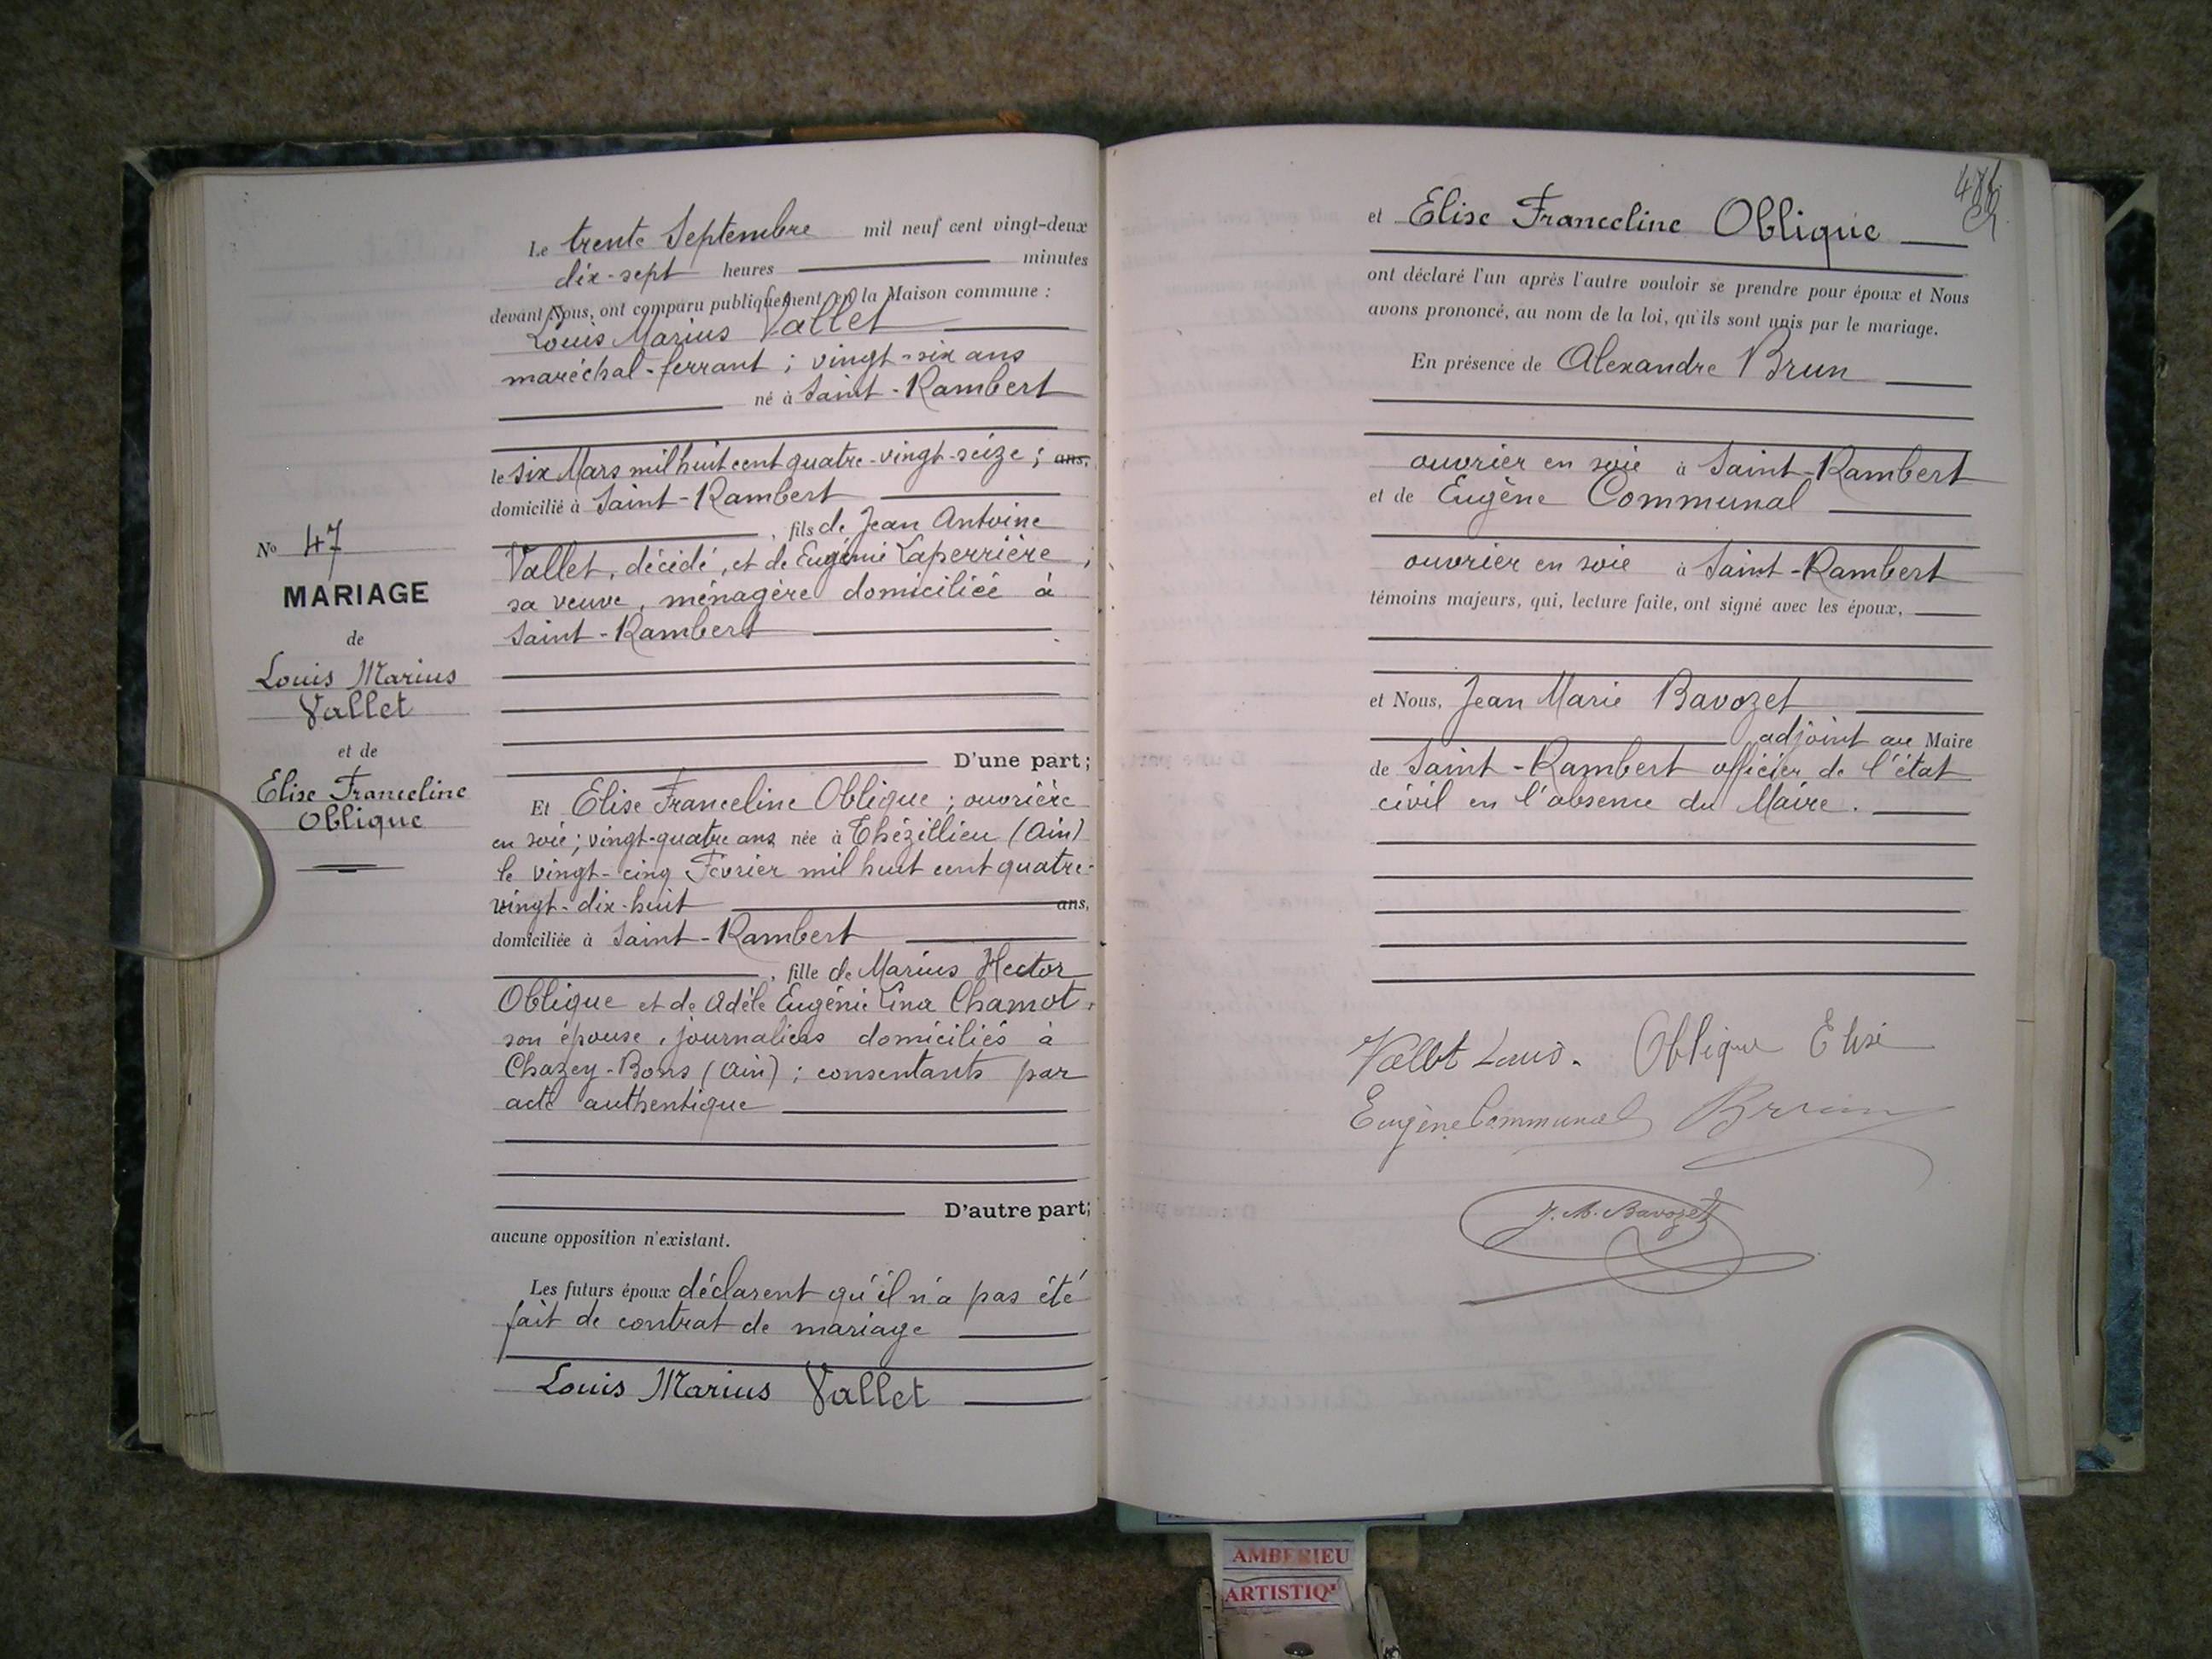 N° 47
MARIAGE
de
Louis Marius
Vallet
et de
Elise Franceline
Oblique
Le trente Septembre mil neuf cent vingt-deux
dix-sept heures minutes
devant Nous, ont comparu publiquement en la Maison commune :
Louis Marius Vallet
maréchal-ferrant ; vingt-six ans
né à Saint-Rambert
le six Mars mil huit cent quatre-vingt-seize ; ans,
domicilié à Saint-Rambert
, fils de Jean Antoine
Vallet, décédé, et de Eugénie Laperrière ;
sa veuve, ménagère domiciliée à
Saint-Rambert
D'une part;
Et Elise Franceline Oblique ; ouvrière
en soie ; vingt-quatre ans née à Thézillieu (Ain)
le vingt-cinq Février mil huit cent quatre-
vingt-dix-huit ans,
domiciliée à Saint-Rambert
, fille de Marius Hector
Oblique et de Adèle Eugénie Lina Chamot,
son épouse, journaliers domiciliés à
Chazey-Bons (Ain) ; consentants par
acte authentique
D'autre part;
aucune opposition n'existant.
Les futurs époux déclarent qu'il n'a pas été
fait de contrat de mariage
Louis Marius Vallet
et Elise Franceline Oblique
ont déclaré l'un après l'autre vouloir se prendre pour époux et Nous
avons prononcé, au nom de la loi, qu'ils sont unis par le mariage.
En présence de Alexandre Brun
ouvrier en soie à Saint-Rambert
et de Eugène Communal
ouvrier en soie à Saint-Rambert
témoins majeurs, qui, lecture faite, ont signé avec les époux,
et Nous, Jean Marie Bavozet
adjoint au Maire
de Saint-Rambert officier de l'état
civil en l'absence du Maire.
Vallet Louis. Oblique Elise
Eugène Communal Brun
J. M. Bavozet
AMBERIEU
ARTISTIQ